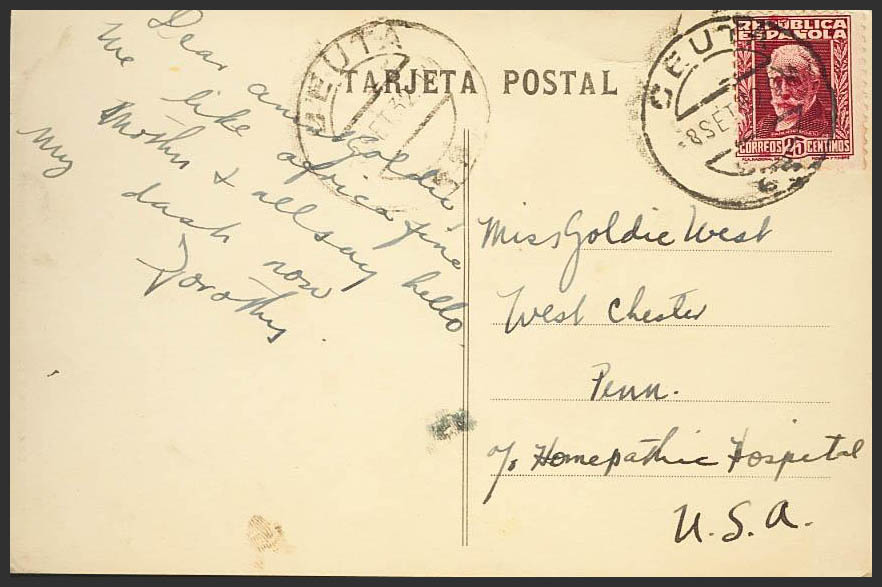 TARJETA POSTAL
CEUTA
SET 32
CEUTA
8 SET
REPUBLICA
ESPAÑOLA
CORREOS 25 CENTIMOS
Dear aunt Goldie,
We like africa fine
Mother & all say hello
My dash now
Dorothy
Miss Goldie West
West Chester
Penn.
c/o Homepathic Hospital
U.S.A.